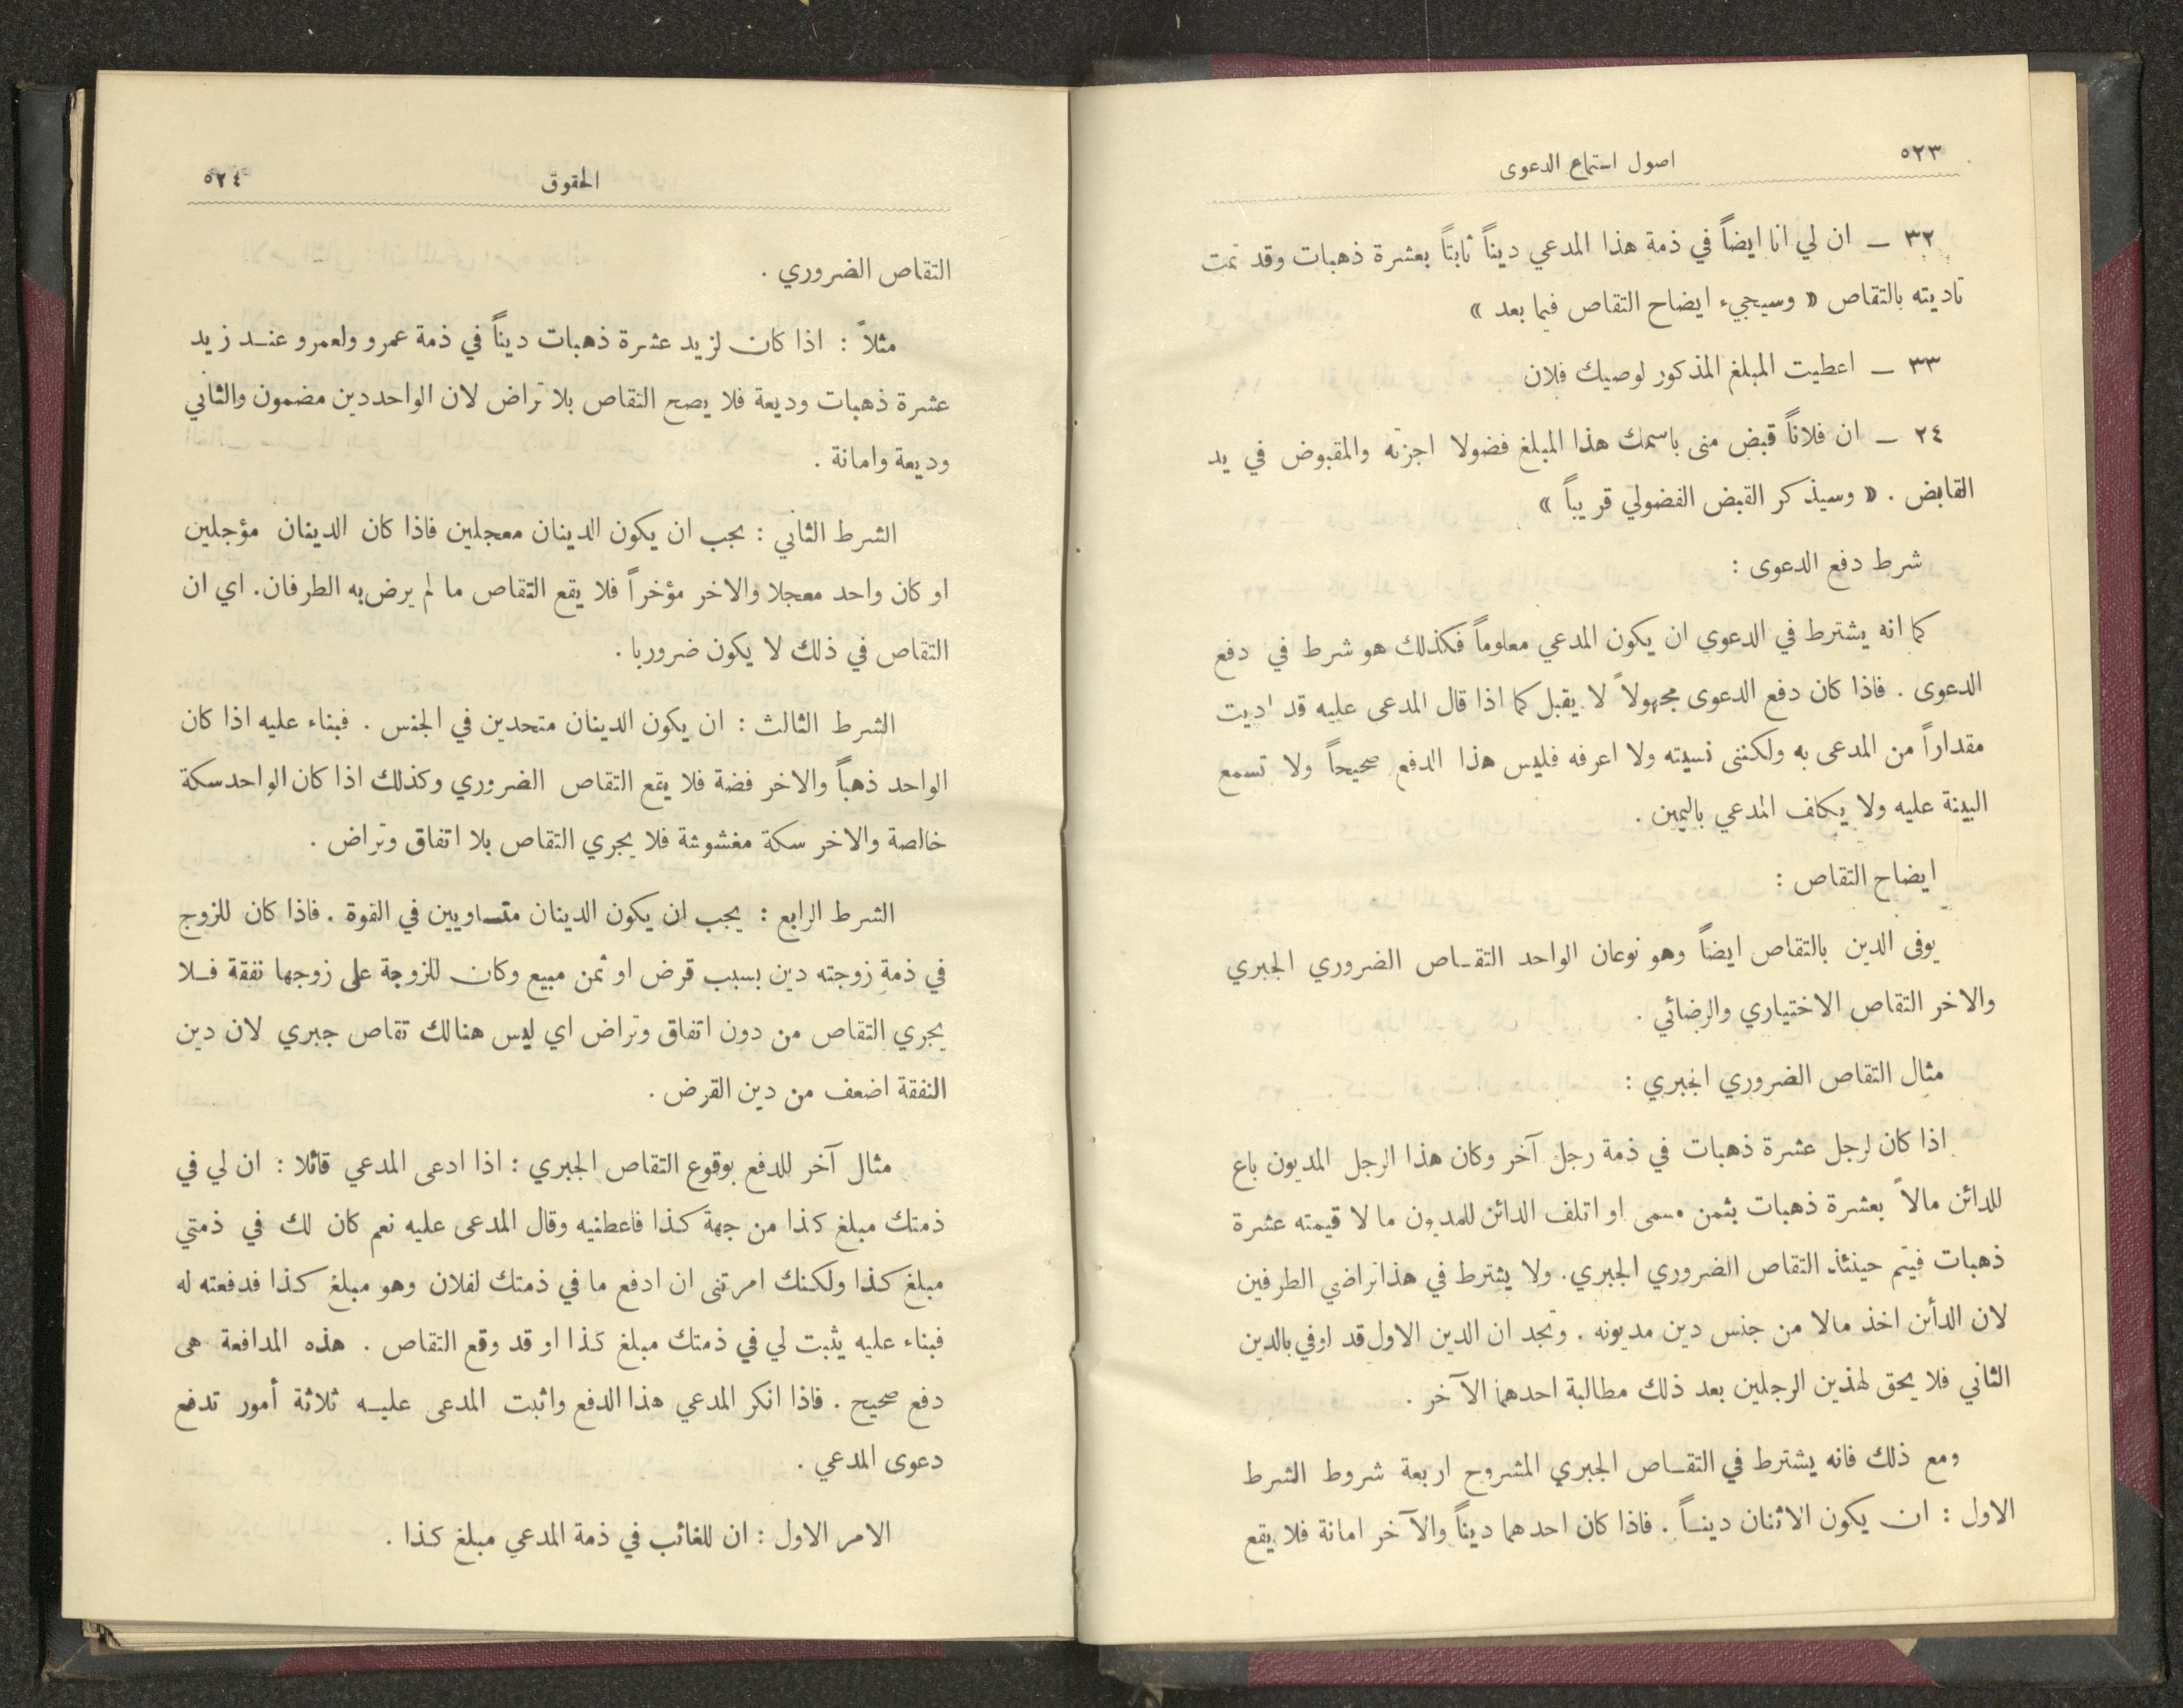 ٥٢٣
اصول استماع الدعوى
٣٢ ـ ان لي انا ايضاً في ذمة هذا المدعي ديناً ثابتاً بعشرة ذهبات وقد تمت
تاديته بالتقاص « وسيجيء ايضاح التقاص فيما بعد »
٣٣ ـ اعطيت المبلغ المذكور لوصيك فلان
٢٤ ـ ان فلاناً قبض منى باسمك هذا المبلغ فضولا اجزته والمقبوض في يد
القابض . « وسيذكر القبض الفضولي قريباً »
شرط دفع الدعوى :
كما انه يشترط في الدعوى ان يكون المدعي معلوماً فكذلك هو شرط في دفع
الدعوى . فاذا كان دفع الدعوى مجهولاً لا يقبل كما اذا قال المدعى عليه قد اديت
مقداراً من المدعى به ولكننى نسيته ولا اعرفه فليس هذا الدفع صحيحاً ولا تسمع
البينة عليه ولا يكلف المدعي باليمين .
ايضاح التقاص :
يوفى الدين بالتقاص ايضاً وهو نوعان الواحد التقـاص الضروري الجبري
والاخر التقاص الاختياري والرضائي .
مثال التقاص الضروري الجبري :
اذا كان لرجل عشرة ذهبات في ذمة رجل آخر وكان هذا الرجل المديون باع
للدائن مالاً بعشرة ذهبات بثمن مسمى او اتلف الدائن للمديون ما لا قيمته عشرة
ذهبات فيتم حينئذ التقاص الضروري الجبري. ولا يشترط في هذا تراضي الطرفين
لان الدأئن اخذ مالا من جنس دين مديونه . وتجد ان الدين الاول قد اوفي بالدين
الثاني فلا يحق لهذين الرجلين بعد ذلك مطالبة احدهما الآخر .
ومع ذلك فانه يشترط في التقـاص الجبري المشروح اربعة شروط الشرط
الاول : ان يكون الاثنان دينـاً . فاذا كان احدهما ديناً والآخر امانة فلا يقع
الحقوق
٥٢٤
التقاص الضروري .
مثلاً : اذا كان لزيد عشرة ذهبات ديناً في ذمة عمرو ولعمرو عنـد زيد
عشرة ذهبات وديعة فلا يصح التقاص بلا تراض لان الواحد دين مضمون والثاني
وديعة وامانة .
الشرط الثاني : يجب ان يكون الدينان معجلين فاذا كان الدينان مؤجلين
او كان واحد معجلا والاخر مؤخراً فلا يقع التقاص ما لم يرض به الطرفان. اي ان
التقاص في ذلك لا يكون ضروريا .
الشرط الثالث : ان يكون الدينان متحدين في الجنس . فبناء عليه اذا كان
الواحد ذهباً والاخر فضة فلا يقع التقاص الضروري وكذلك اذا كان الواحد سكة
خالصة والاخر سكة مغشوشة فلا يجري التقاص بلا اتفاق وتراض .
الشرط الرابع : يجب ان يكون الدينان متساويين في القوة . فاذا كان للزوج
في ذمة زوجته دين بسبب قرض او ثمن مبيع وكان للزوجة على زوجها نفقة فـلا
يجري التقاص من دون اتفاق وتراض اي ليس هنالك تقاص جبري لان دين
النفقة اضعف من دين القرض .
مثال آخر للدفع بوقوع التقاص الجبري : اذا ادعى المدعي قائلا : ان لي في
ذمتك مبلغ كذا من جهة كذا فاعطنيه وقال المدعى عليه نعم كان لك في ذمتي
مبلغ كذا ولكنك امرتنى ان ادفع ما في ذمتك لفلان وهو مبلغ كذا فدفعته له
فبناء عليه يثبت لي في ذمتك مبلغ كذا او قد وقع التقاص . هذه المدافعة هى
دفع صحيح . فاذا انكر المدعي هذا الدفع واثبت المدعى عليـه ثلاثة أمور تدفع
دعوى المدعي .
الامر الاول : ان للغائب في ذمة المدعي مبلغ كذا .